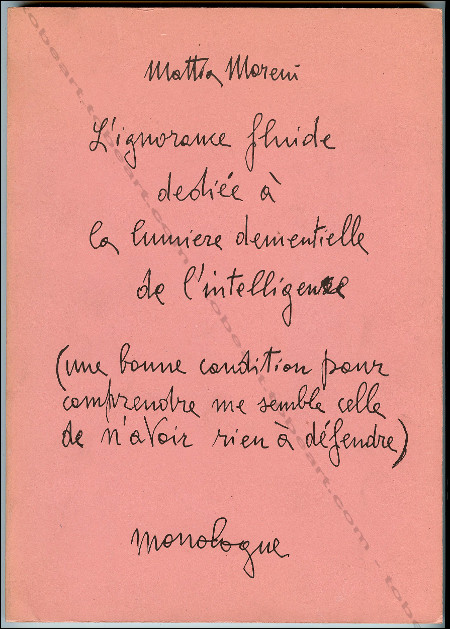 Mattia Moreni
L'ignorance fluide
dediée à
la lumiere dementielle
de l'intelligence
(une bonne condition pour
comprendre me semble celle
de n'avoir rien à défendre)
monologue